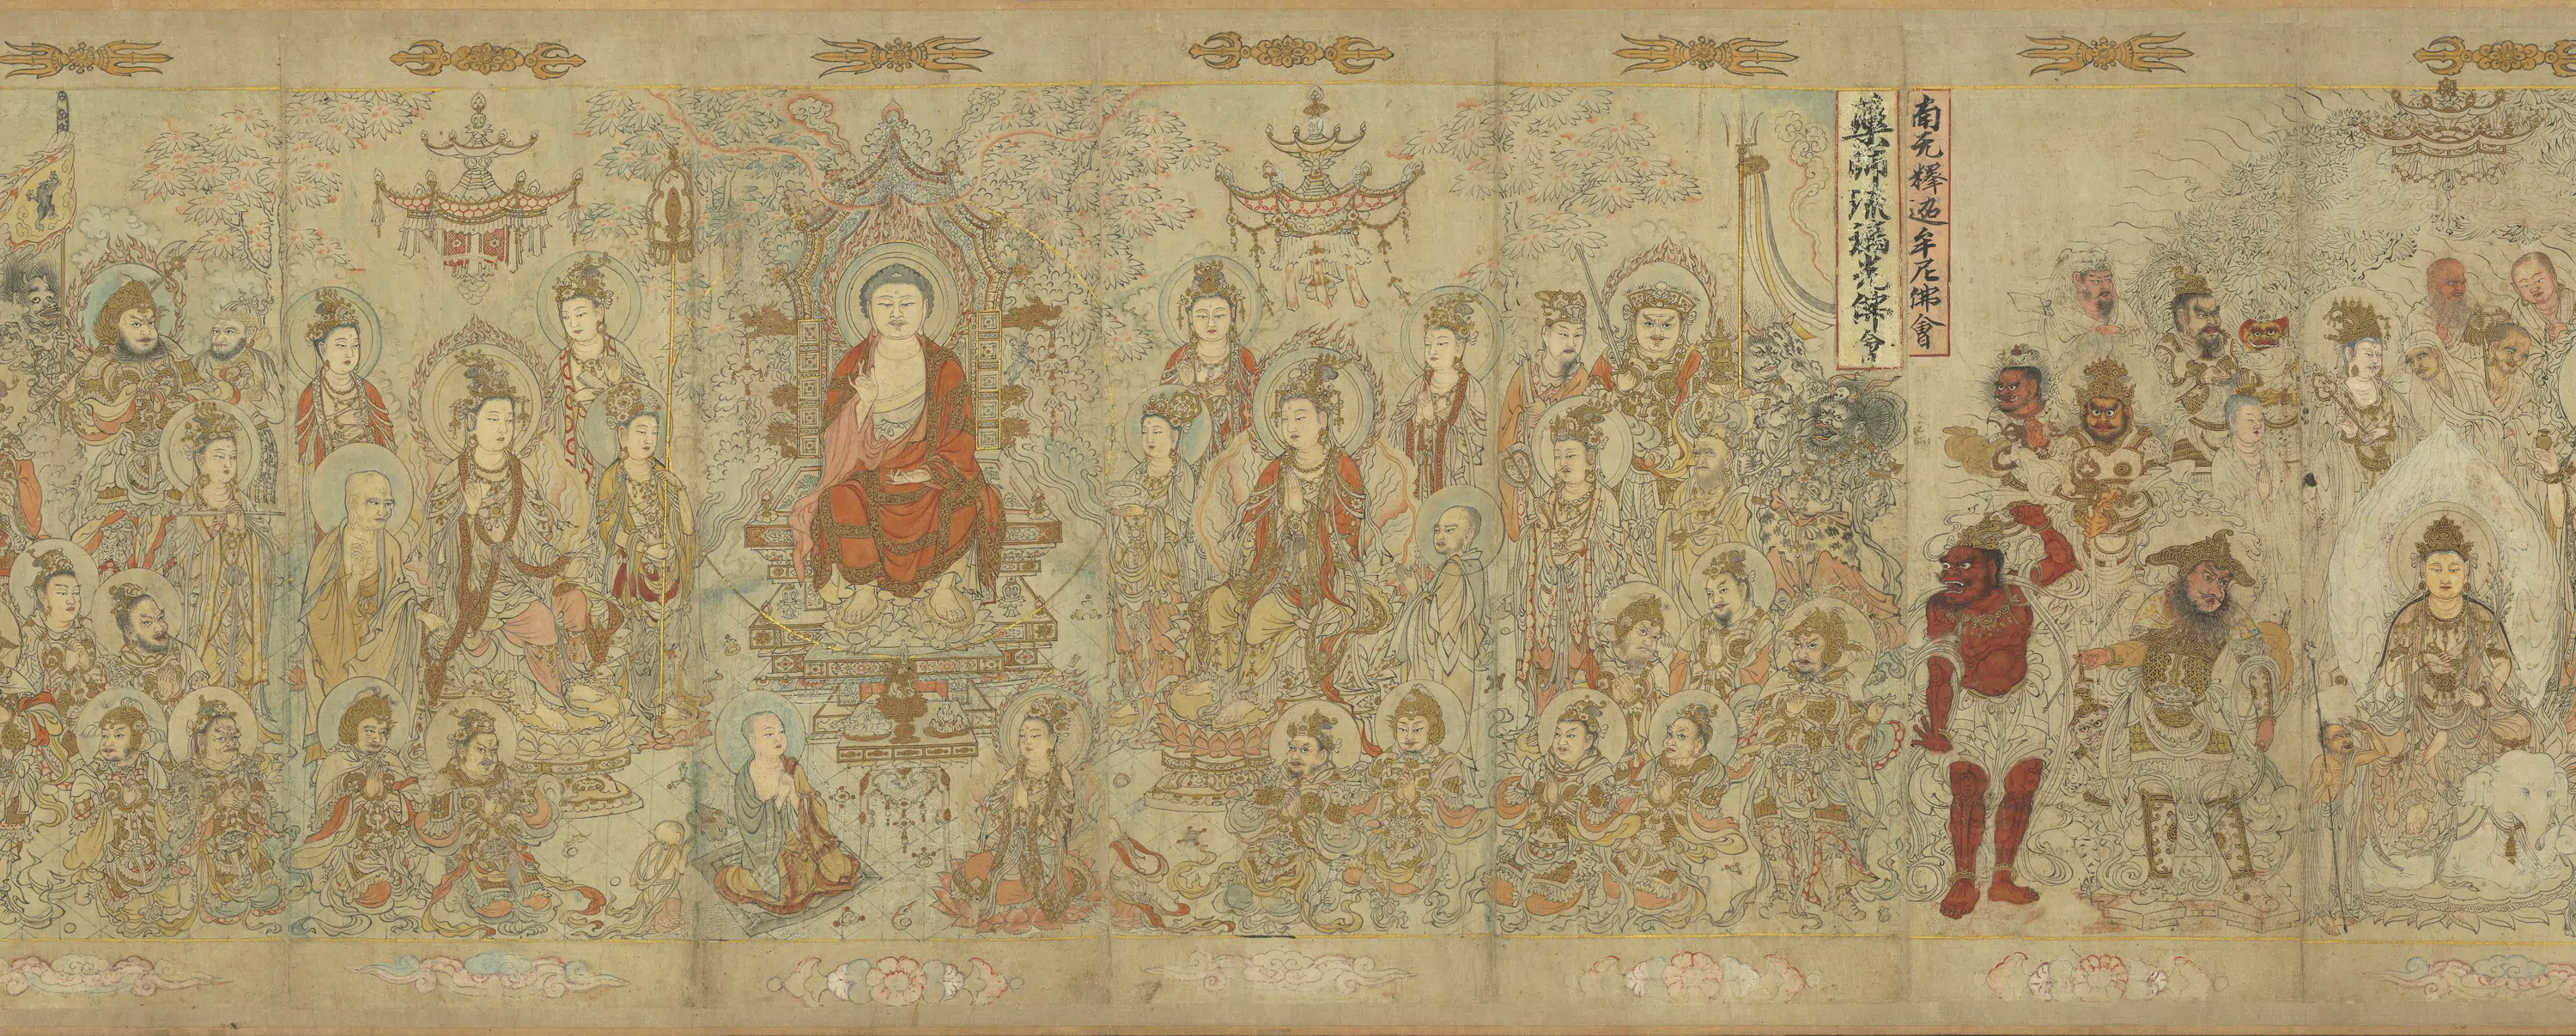 南无釋迦牟尼佛會
藥師琉璃光佛會